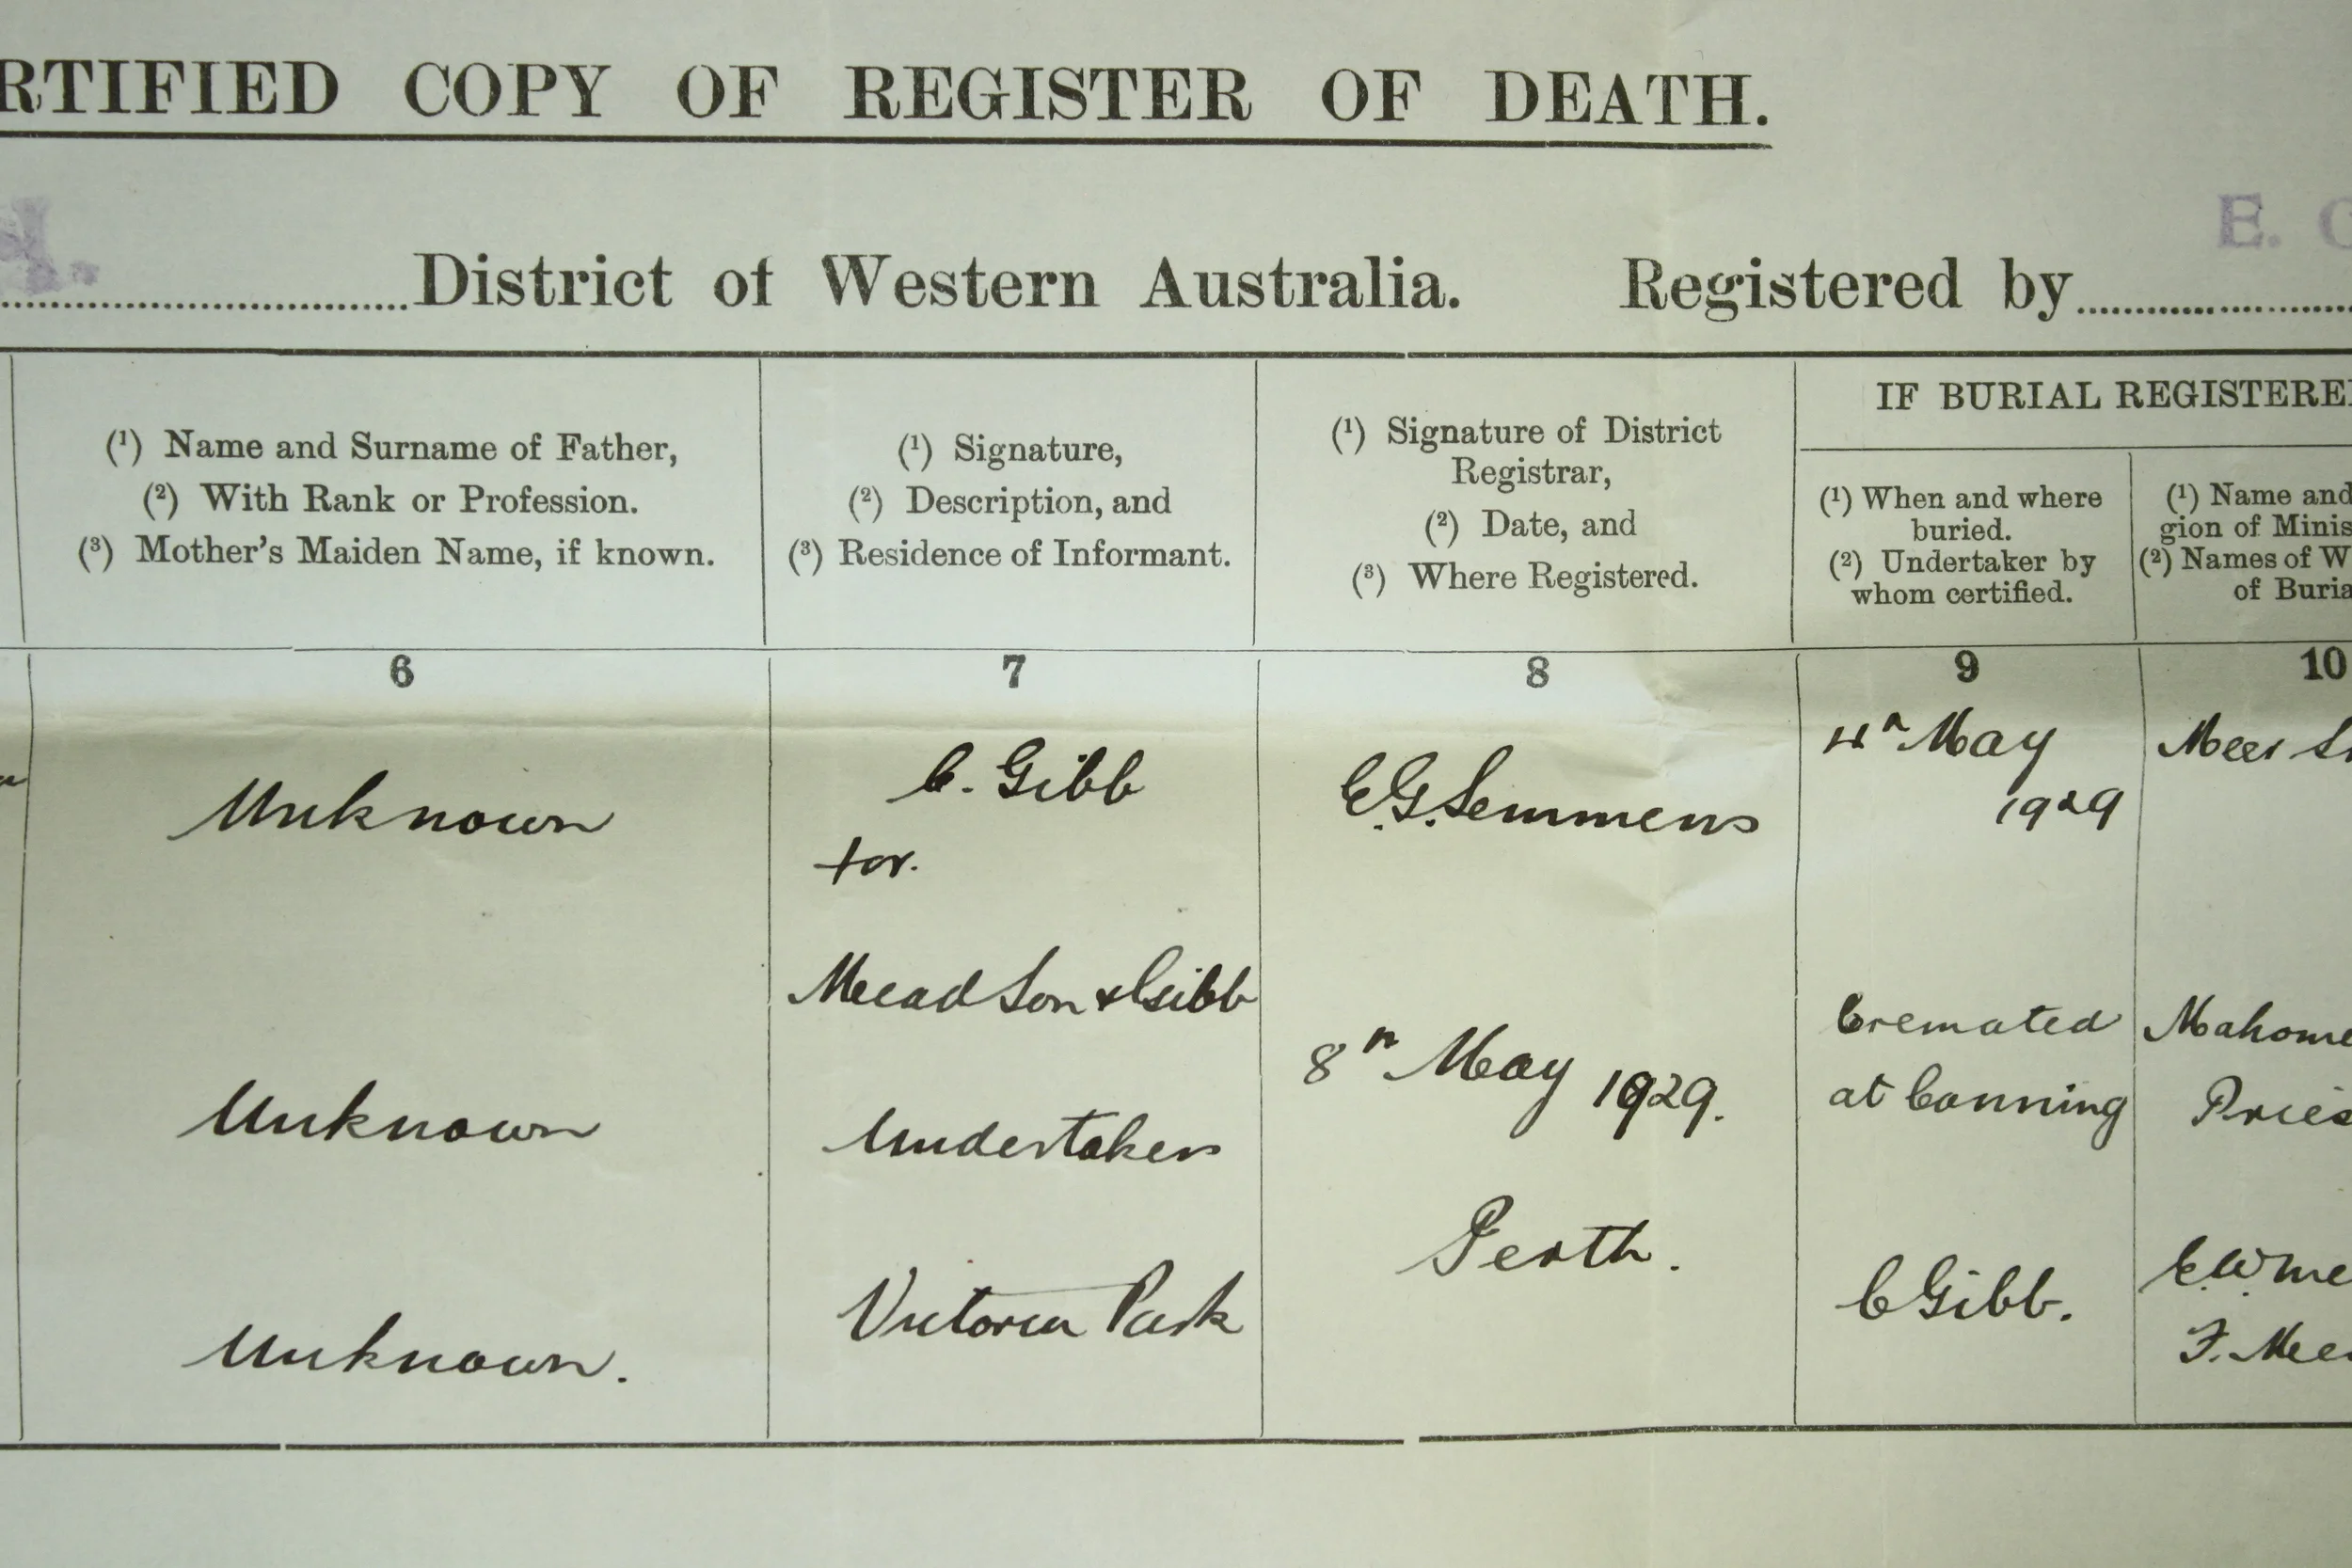 RTIFIED COPY OF REGISTER OF DEATH.
E.
District of Western Australia. Registered by
(1) Name and Surname of Father,
(2) With Rank or Profession.
(3) Mother's Maiden Name, if known.
(1) Signature,
(2) Description, and
(3) Residence of Informant.
(1) Signature of District
Registrar,
(2) Date, and
(3) Where Registered.
IF BURIAL REGISTERE
(1) When and where
buried.
(2) Undertaker by
whom certified.
(1) Name and
gion of Minis
(2) Names of W
of Buria
6
7
8
9
10
Unknown
Unknown
Unknown.
C. Gibb
for.
Mead Son & Gibb
Undertakers
Victoria Park
E.G. Semmens
8th May 1929.
Perth.
4th May
1929
Cremated
at Canning
C Gibb.
Meer
Mahome
Pries
F. Mee